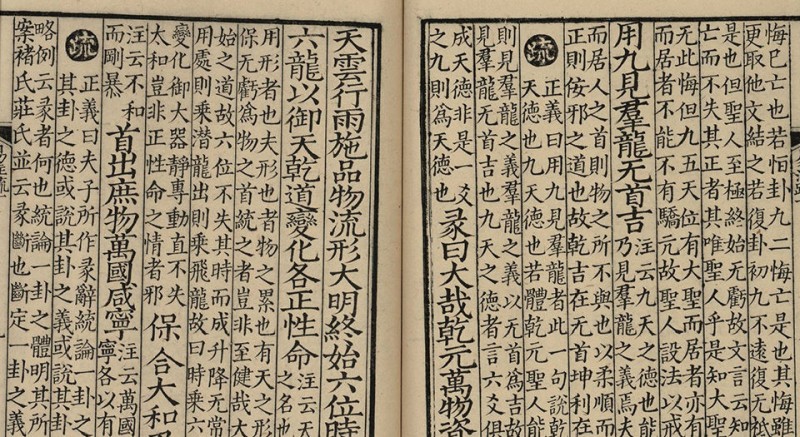 悔已亡也若恒卦九二悔亡是也其悔雖
更取他文結之若復卦初九不遠復无祗悔
是也但聖人至極終始无虧故文言云知
亡而不失其正者其唯聖人乎是知大聖
无此悔但九五天位有大聖而居者亦有
而居者不能不有驕亢故聖人設法以戒
用九見羣龍无首吉
注云九天之德也能
乃見羣龍之義焉夫
而居人之首則物之所不與也以柔順而
正則佞邪之道也故乾吉在无首坤利在
疏
正義曰用九見羣龍者此一句說乾
天德也九天德也若體乾元聖人能
則見羣龍之義羣龍之義以无首爲吉故
見羣龍无首吉也九天之德者言六爻俱
成天德非是一爻
之九則爲天德也
彖曰大哉乾元萬物資
天雲行雨施品物流形大明終始六位時
六龍以御天乾道變化各正性命
注云天
之名也
用形者也夫形也者物之累也有天之形
保无虧爲物之首統之者豈非至健哉大
始之道故六位不失其時而成升降无常
用處則乘潛龍出則乘飛龍故曰時乘六
變化御大器靜專動直不失
大和豈非正性命之情者邪
保合大和乃
注云不和
而剛暴
首出庶物萬國咸寧
注云萬國
寧各以有
疏
正義曰夫子所作彖辭統論一卦之
其卦之德或說其卦之義或說其卦
略例云彖者何也統論一卦之體明其所
案褚氏莊氏並云彖斷也斷定一卦之義